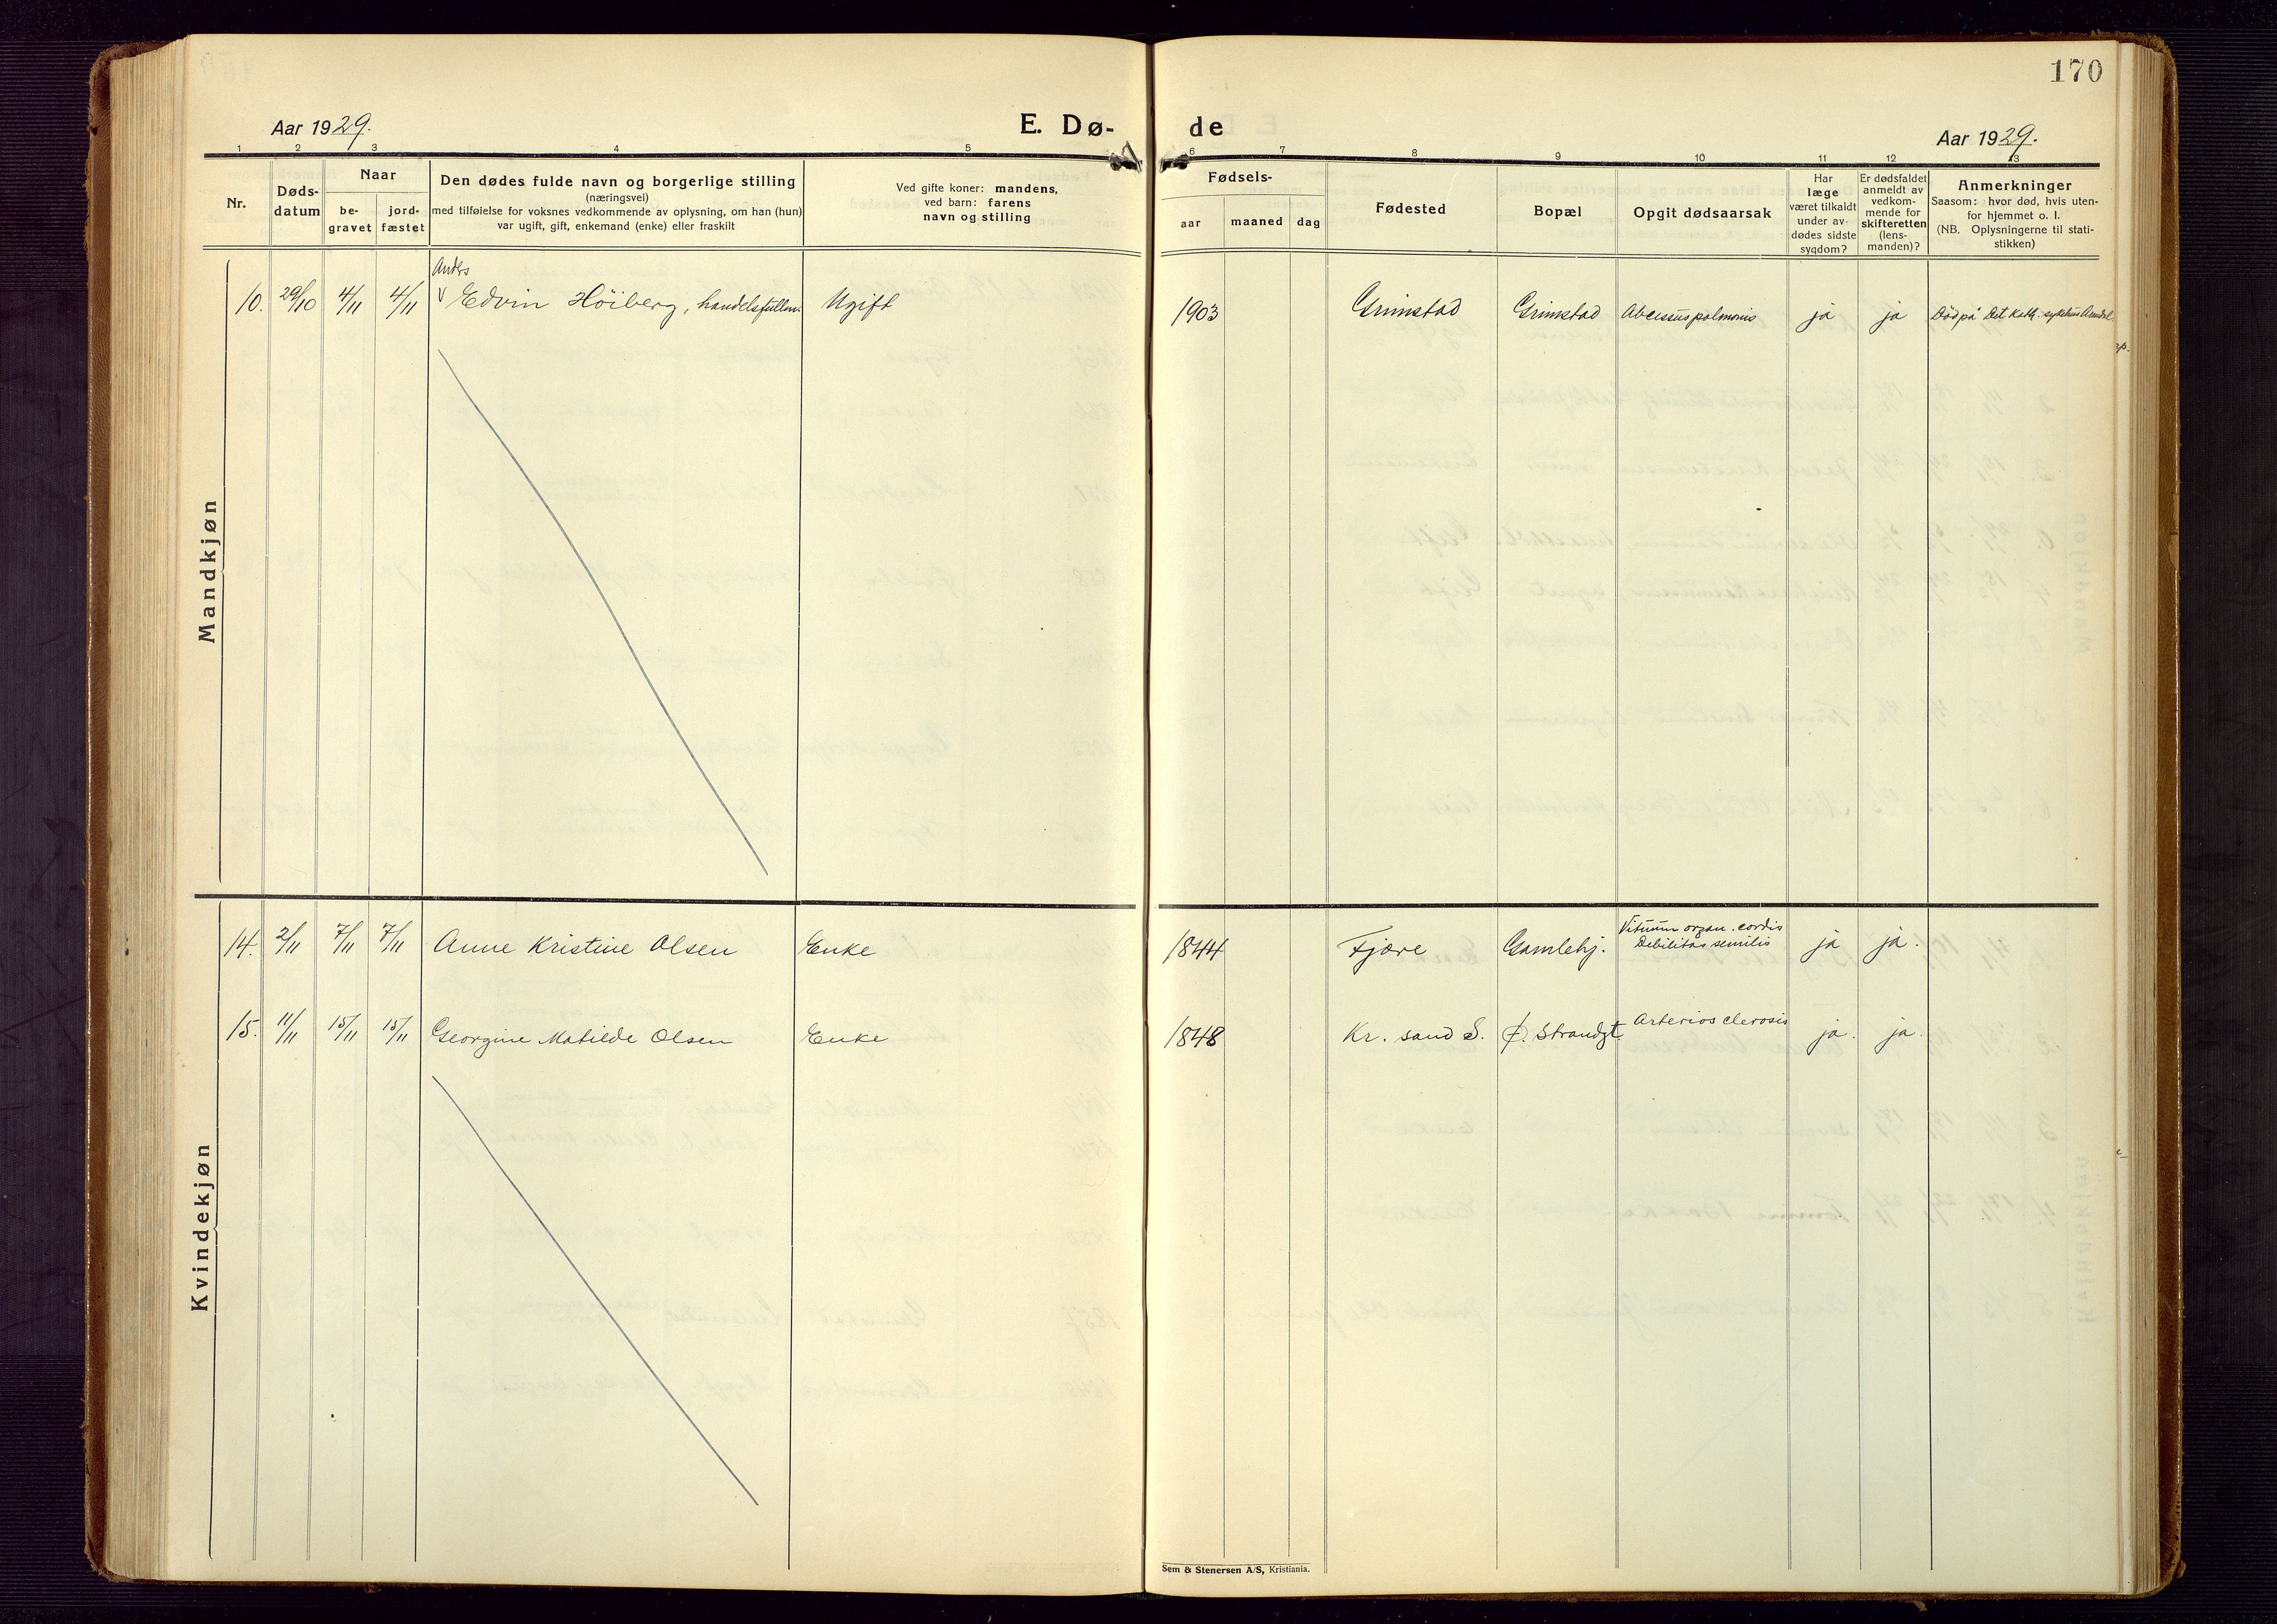 170
Aar 1929.
E. Dø-
de
Aar 1929.
1 2 3 4 5 6 7 8 9 10 11 12 13
Nr.
Døds-
datum
Naar
be-
gravet
jord-
fæstet
Den dødes fulde navn og borgerlige stilling
(næringsvei)
med tilføielse for voksnes vedkommende av oplysning, om han (hun)
var ugift, gift, enkemand (enke) eller fraskilt
Ved gifte koner: mandens,
ved barn: farens
navn og stilling
Fødsels-
aar
maaned
dag
Fødested
Bopæl
Opgit dødsaarsak
Har
læge
været tilkaldt
under av-
dødes sidste
sygdom?
Er dødsfaldet
anmeldt av
vedkom-
mende for
skifteretten
(lens-
manden)?
Anmerkninger
Saasom: hvor død, hvis uten-
for hjemmet o. l.
(NB. Oplysningerne til stati-
stikken)
Mandkjøn
Anders
10. 29/10 4/11 4/11 V Edvin Höiberg, handelsfullm. Ugift 1903 Grimstad Grimstad Abcessus polmonis ja ja Död på Det Kath. sykehus Arendal
Kvindekjøn
Vitium organ. cordis
14. 2/11 7/11 7/11 Anne Kristine Olsen Enke 1844 Fjære Gamlehj. Debilitas semilis ja ja.
15. 11/11 15/11 15/11 Georgine Matilde Olsen Enke 1848 Kr. sand S. Ø. Strandgt. Arteriosclerosis ja. ja.
Sem & Stenersen A/S, Kristiania.